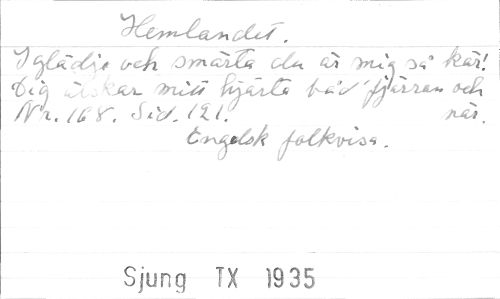 Hemlandet.
I glädje och smärta du är mig så kär!
Dig älskar mitt hjärta båd' fjärran och
när.
Nr. 168. Sid. 121.
Engelsk folkvisa.
Sjung TX 1935